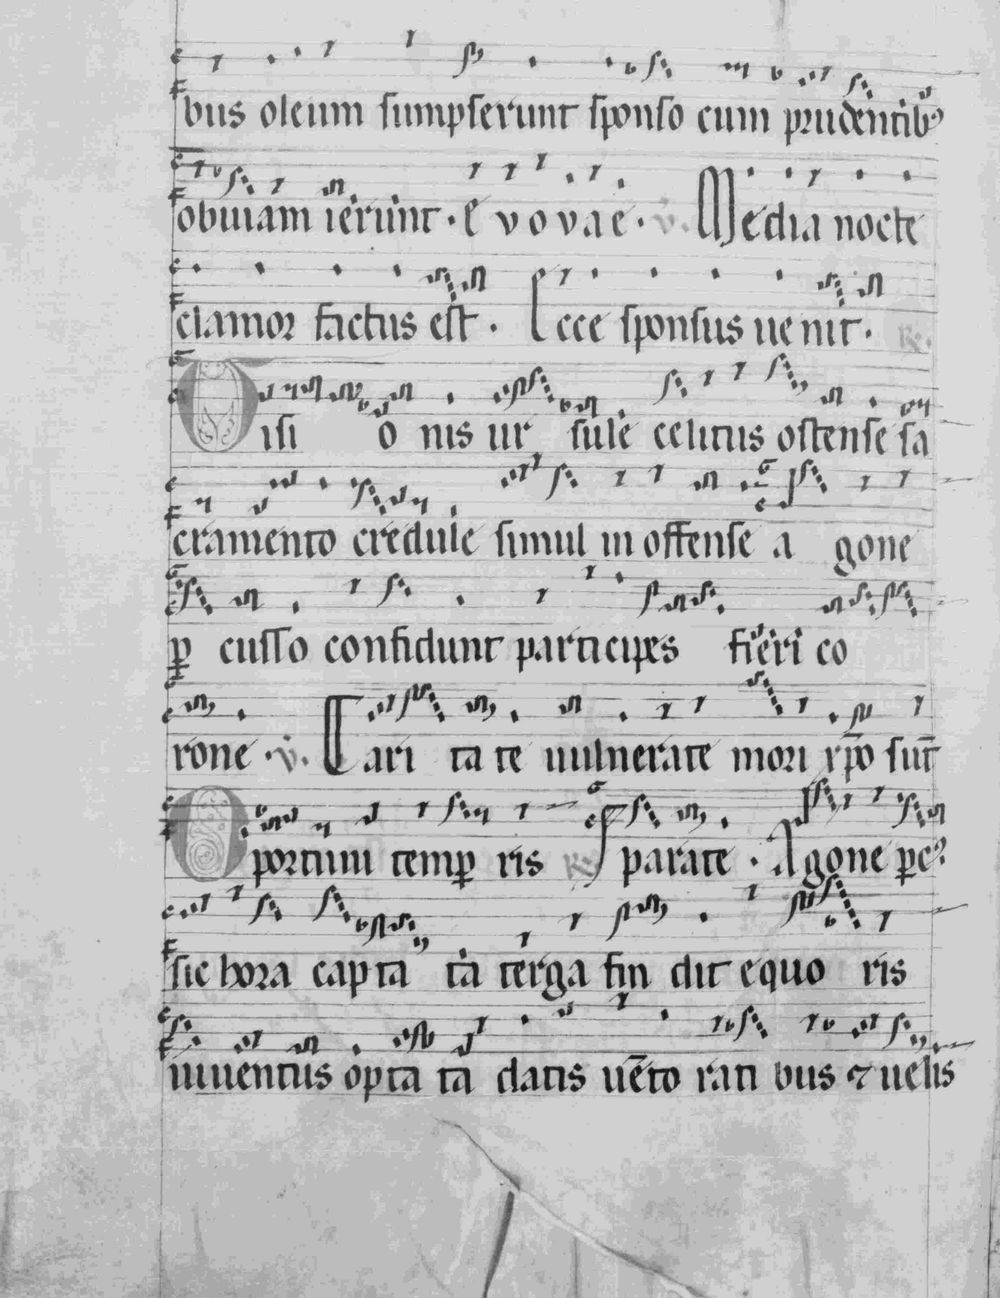 bus oleum sumpserunt sponso cum prudentibꝰ
obuiam ierunt · e v o v a e · v̄. Media nocte
clamor factus est · Ecce sponsus uenit · R̄.
Visi o nis ur sule celitus ostense sa
cramento credule simul in offense a gone
ꝑ cusso confidunt participes fieri co
rone · v̄. Cari ta te uulnerate mori xp̄o sūt
Oportuni temꝑ ris R̄. parate · Agone ꝑc
sic hora capta ta terga fin dit equo ris
iuuentus opta ta datis uēto rati bus ⁊ uelis